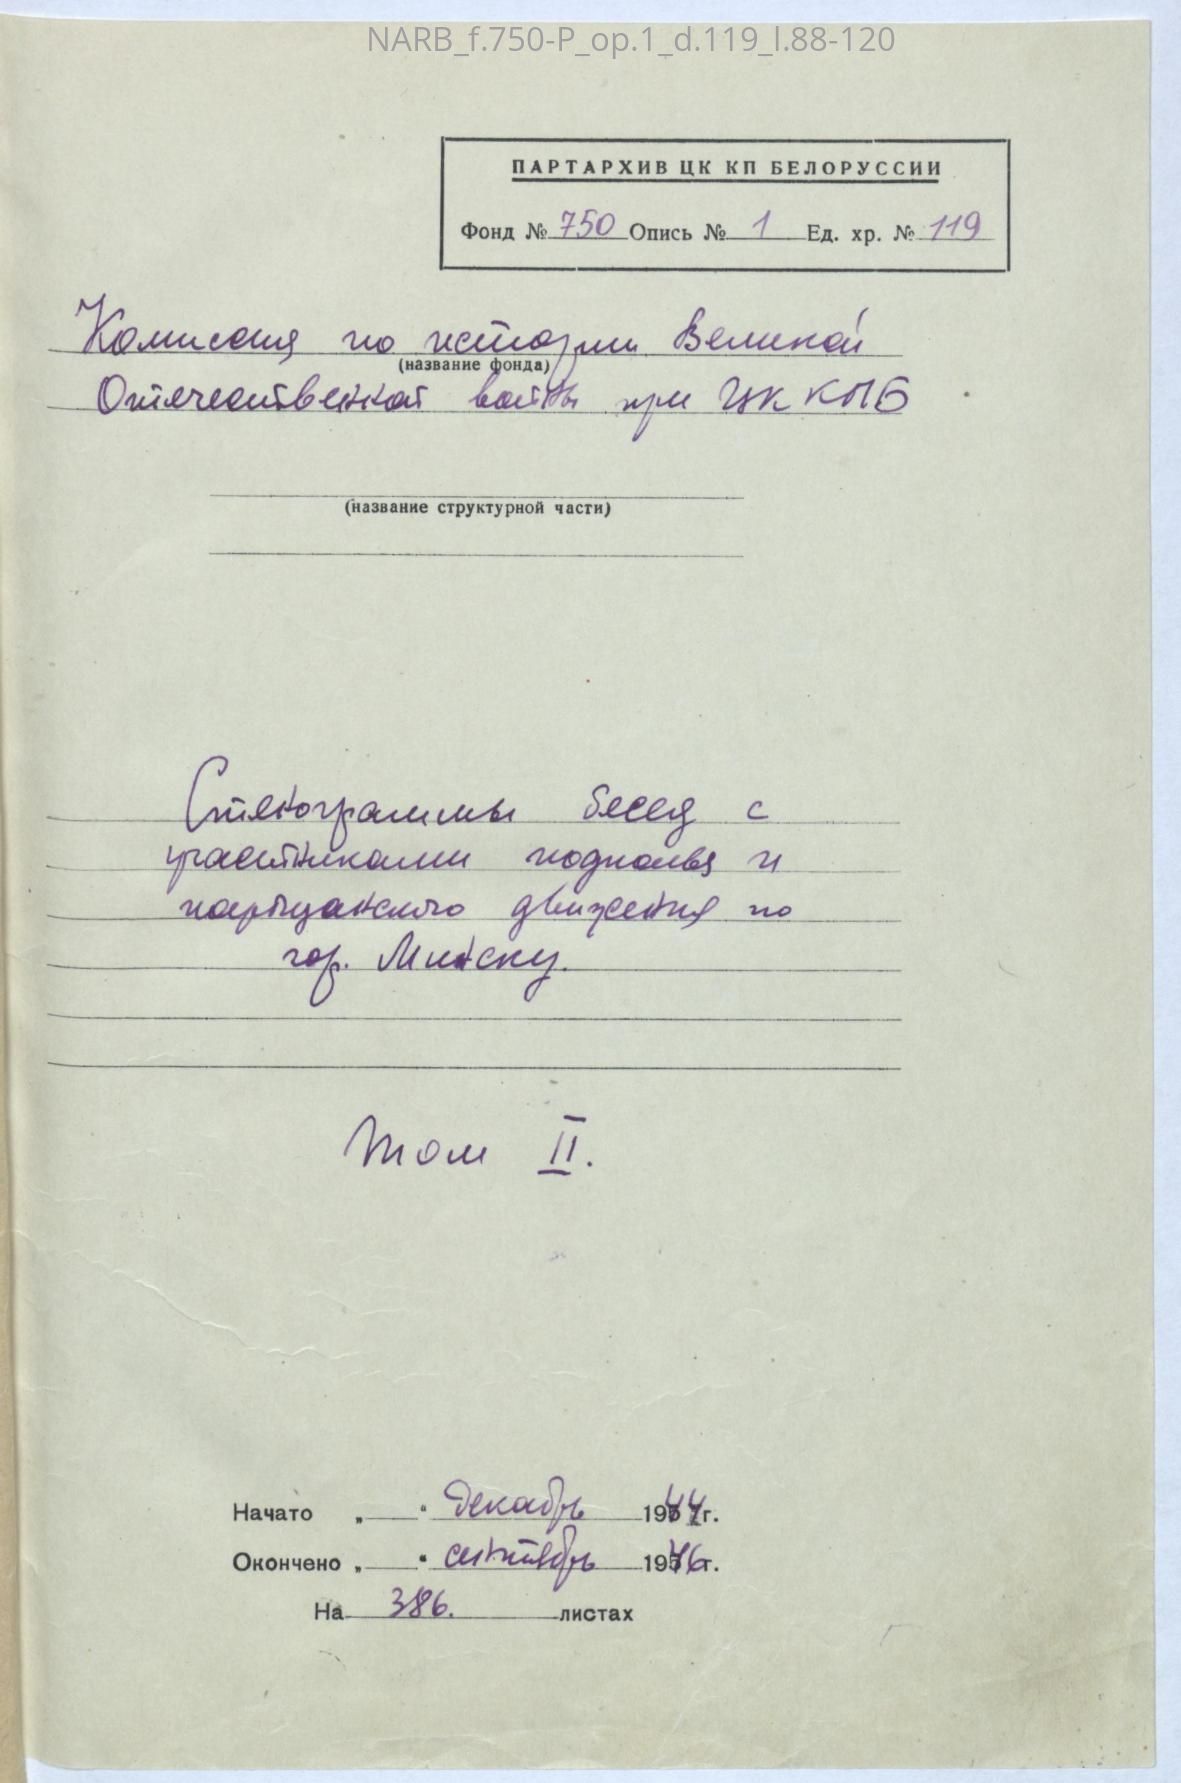 NARB_f.750-P_op.1_d.119_l.88-120
ПАРТАРХИВ ЦК КП БЕЛОРУССИИ
Фонд № 750 Опись № 1 Ед. хр. № 119
Комиссия по истории Великой
(название фонда)
Отечественной войны при ЦК КПБ
(название структурной части)
Стенограммы бесед с
участниками подполья и
партизанского движения по
гор. Минску.
Том II.
Начато „ “ декабрь 1944г.
Окончено „ “ сентябрь 1946г.
На 386. листах